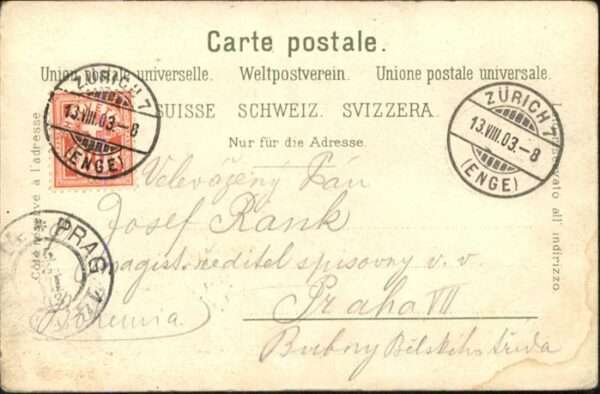 Carte postale.
Union postale universelle. Weltpostverein. Unione postale universale.
SUISSE SCHWEIZ. SVIZZERA.
Nur für die Adresse.
Côté réservé à l'adresse
all' indirizzo.
ZÜRICH 7
13.VIII.03.-8
(ENGE)
ZÜRICH 7
13.VIII.03.-8
(ENGE)
PRAG
Velevážený Pán
Josef Rank
magist. ředitel spisovny v. v.
Praha VII
Bubny Bělského třída
Bohemia